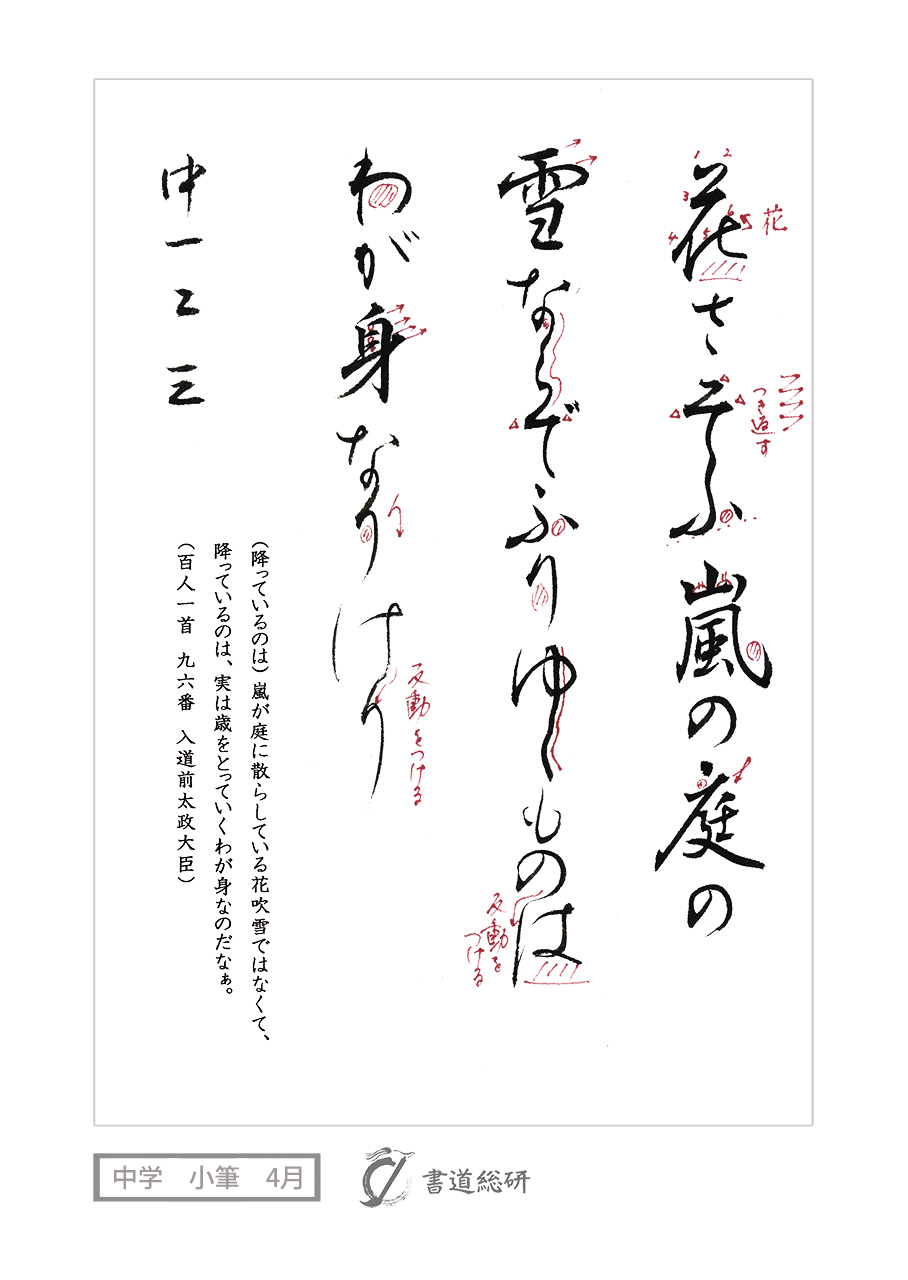 花さそふ嵐の庭の
花
つき返す
雪ならでふりゆくものは
反動を
つける
わが身なりけり
反動をつける
中一二三
(降っているのは)嵐が庭に散らしている花吹雪ではなくて、
降っているのは、実は歳をとっていくわが身なのだなぁ。
(百人一首 九六番 入道前太政大臣)
中学 小筆 4月
書道総研